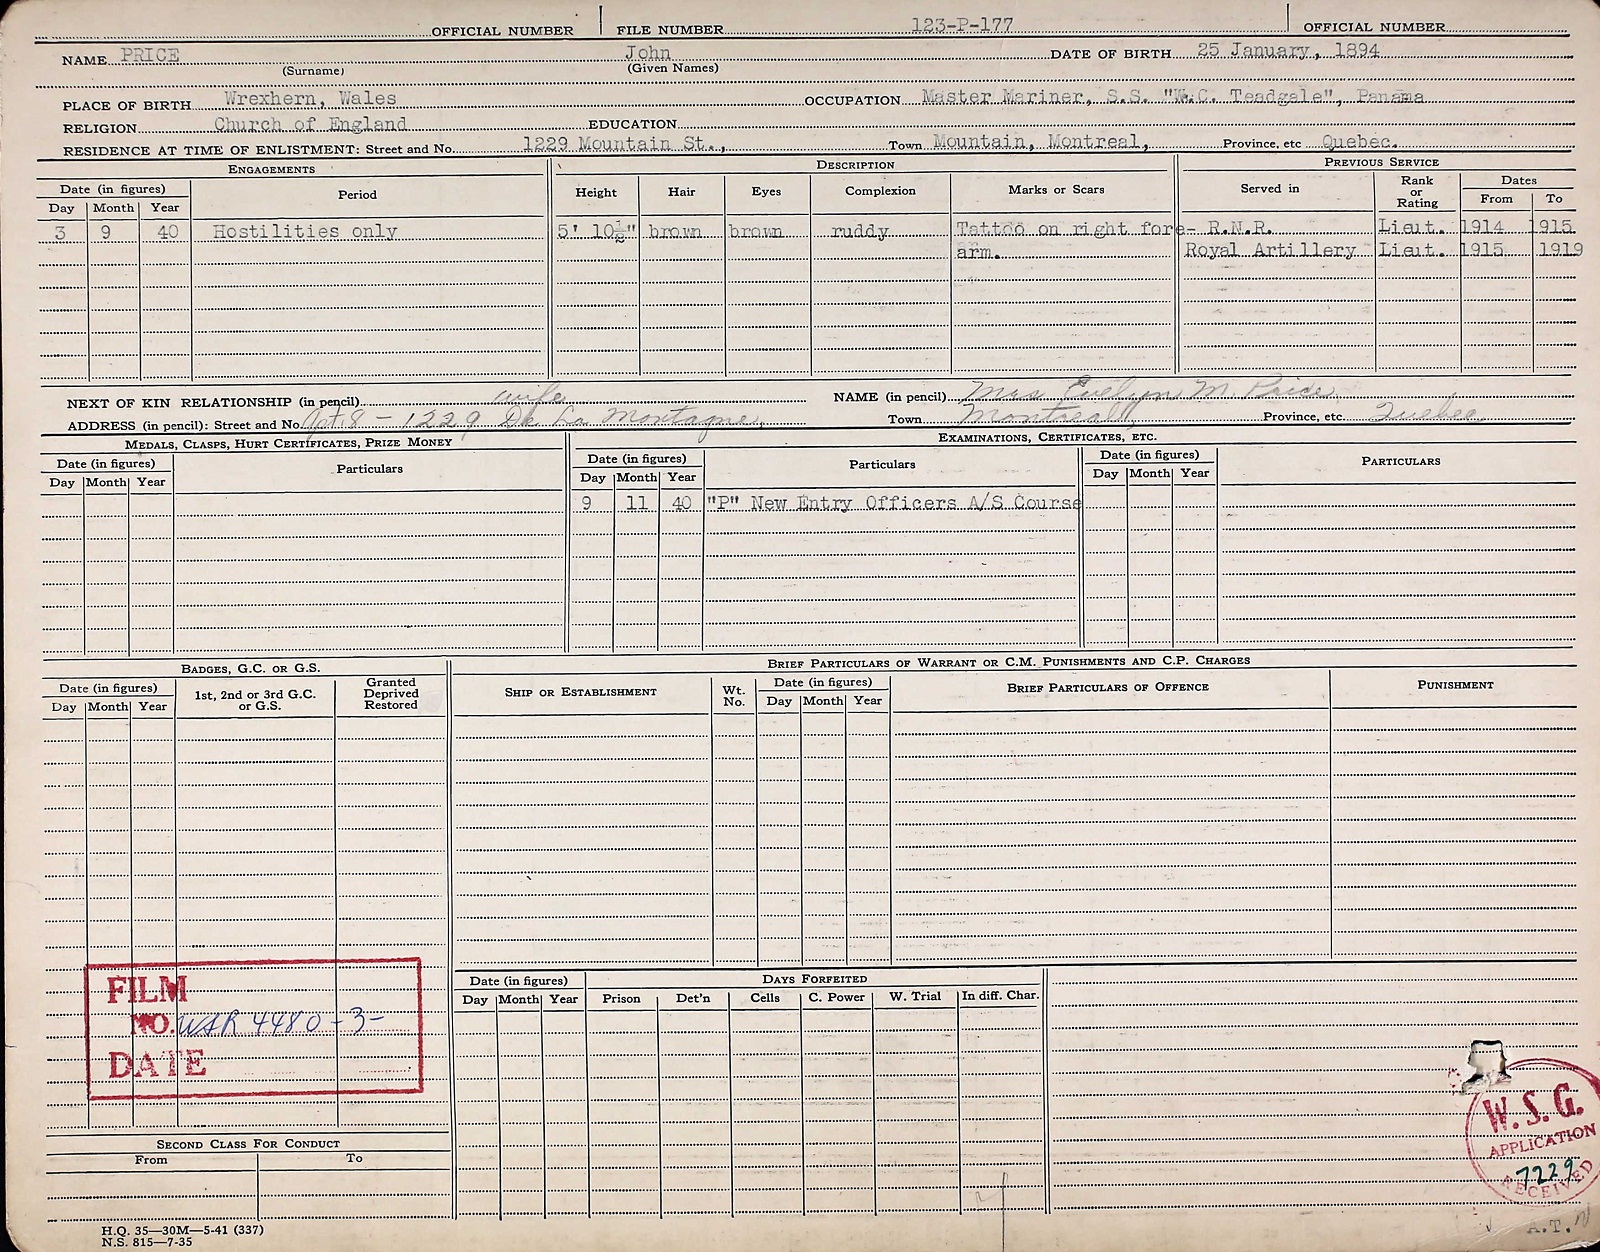 OFFICIAL NUMBER FILE NUMBER 123-P-177 OFFICIAL NUMBER
NAME PRICE John DATE OF BIRTH 25 January, 1894
(Surname) (Given Names)
PLACE OF BIRTH Wrexhern, Wales OCCUPATION Master Mariner, S.S. "W.C. Teadgale", Panama
RELIGION Church of England EDUCATION
RESIDENCE AT TIME OF ENLISTMENT: Street and No. 1229 Mountain St., Town Mountain, Montreal, Province, etc Quebec.
ENGAGEMENTS DESCRIPTION PREVIOUS SERVICE
Date (in figures) Period Height Hair Eyes Complexion Marks or Scars Served in Rank or Rating Dates
Day Month Year From To
3 9 40 Hostilities only 5' 10½" brown brown ruddy Tattoo on right fore- R.N.R. Lieut. 1914 1915
arm. Royal Artillery Lieut. 1915 1919
NEXT OF KIN RELATIONSHIP (in pencil) wife NAME (in pencil) Mrs Evelyn M. Price,
ADDRESS (in pencil): Street and No. Apt. 8 - 1229 De La Montagne, Town Montreal, Province, etc. Quebec
MEDALS, CLASPS, HURT CERTIFICATES, PRIZE MONEY EXAMINATIONS, CERTIFICATES, ETC.
Date (in figures) Particulars Date (in figures) Particulars Date (in figures) PARTICULARS
Day Month Year Day Month Year Day Month Year
9 11 40 "P" New Entry Officers A/S Course
BADGES, G.C. OR G.S. BRIEF PARTICULARS OF WARRANT OR C.M. PUNISHMENTS AND C.P. CHARGES
Date (in figures) 1st, 2nd or 3rd G.C. or G.S. Granted Deprived Restored SHIP OR ESTABLISHMENT Wt. No. Date (in figures) BRIEF PARTICULARS OF OFFENCE PUNISHMENT
Day Month Year Day Month Year
Date (in figures) DAYS FORFEITED
Day Month Year Prison Det'n Cells C. Power W. Trial In diff. Char.
FILM
NO. WSR 4480-3-
DATE
W.S.G.
APPLICATION
7229
RECEIVED
SECOND CLASS FOR CONDUCT
From To
A.T.N
H.Q. 35—30M—5-41 (337)
N.S. 815—7-35